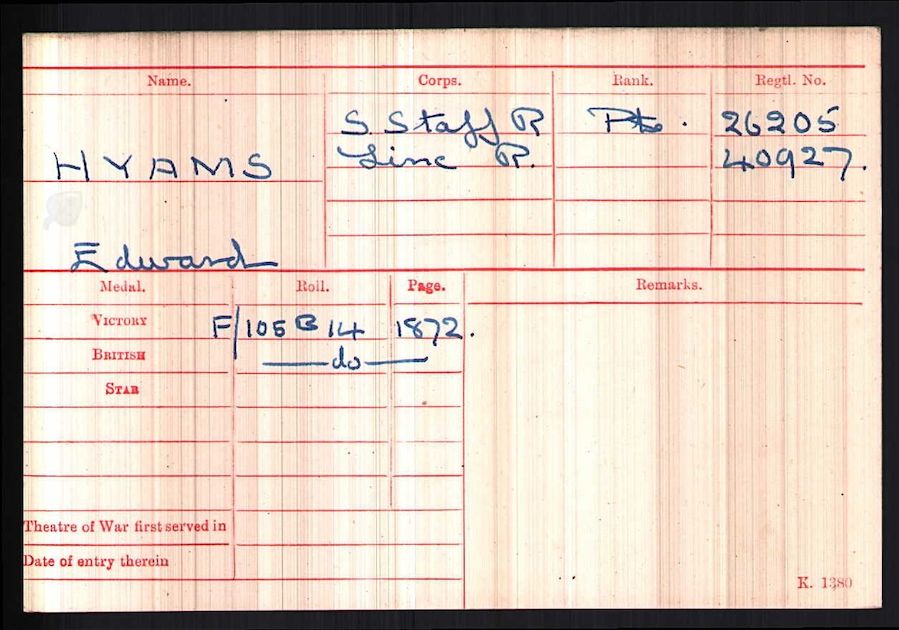 Name. Corps. Rank. Regtl. No.
S. Staff R Pte. 26205
HYAMS Linc R. 40927.
Edward
Medal. Roll. Page. Remarks.
VICTORY F/105 B 14 1872.
BRITISH —do—
STAR
Theatre of War first served in
Date of entry therein
K. 1380